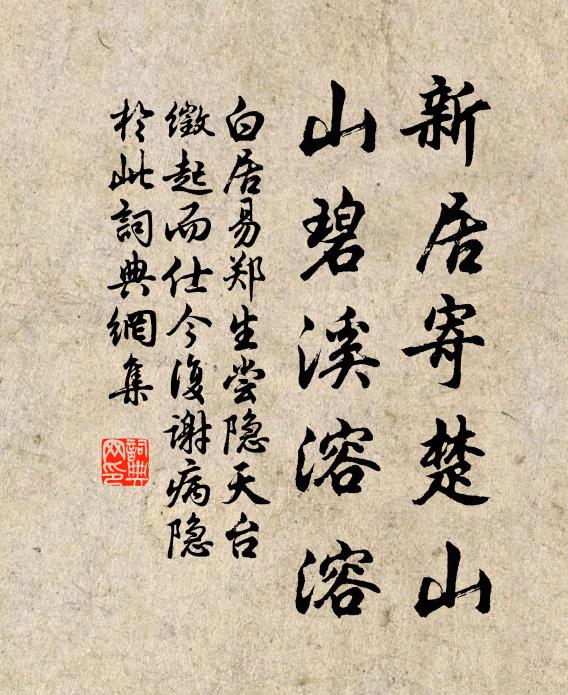 新居寄楚山
山碧溪溶溶
白居易郑生尝隐天台
徵起而仕今復谢病隐
於此詞典網集
詞典
网印